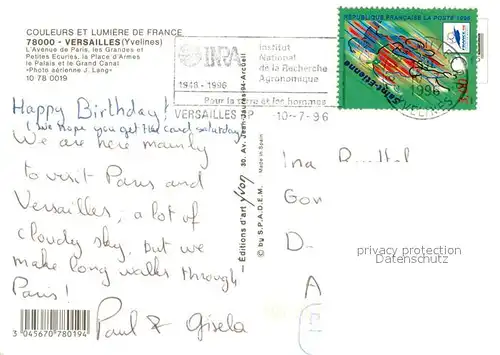 COULEURS ET LUMIÈRE DE FRANCE
78000 - VERSAILLES (Yvelines)
L'Avenue de Paris, les Grandes et
Petites Ecuries, la Place d'Armes
le Palais et le Grand Canal
«Photo aérienne J. Lang»
10 78 0019
Happy Birthday!
(We hope you get the card saturday)
We are here mainly
to visit Paris and
Versailles; a lot of
cloudy sky, but we
make long walks through
Paris!
Paul & Gisela
3 045670 780194
Editions d'art yvon 30, Av. Jean-Jaurès 94-Arcueil
© by S.P.A.D.E.M. Made in Spain
INRA
1946-1996
Institut
National
de la Recherche
Agronomique
Pour la terre et les hommes
VERSAILLES RP 10-7-96
RÉPUBLIQUE FRANÇAISE LA POSTE 1996
Saint-Etienne
1996
YVELINES
Ina
D-
A
privacy protection
Datenschutz